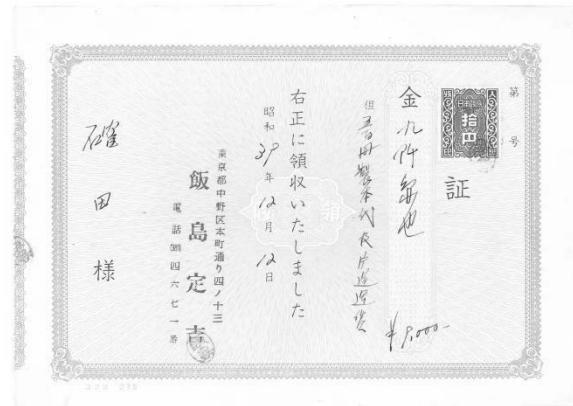 第　号
拾円
証
金九阡円也
¥9,000-
右正に領収いたしました
昭和39年12月12日
東京都中野区本町通り四ノ十三
飯島定吉
電話(381)四六七一番
確田様